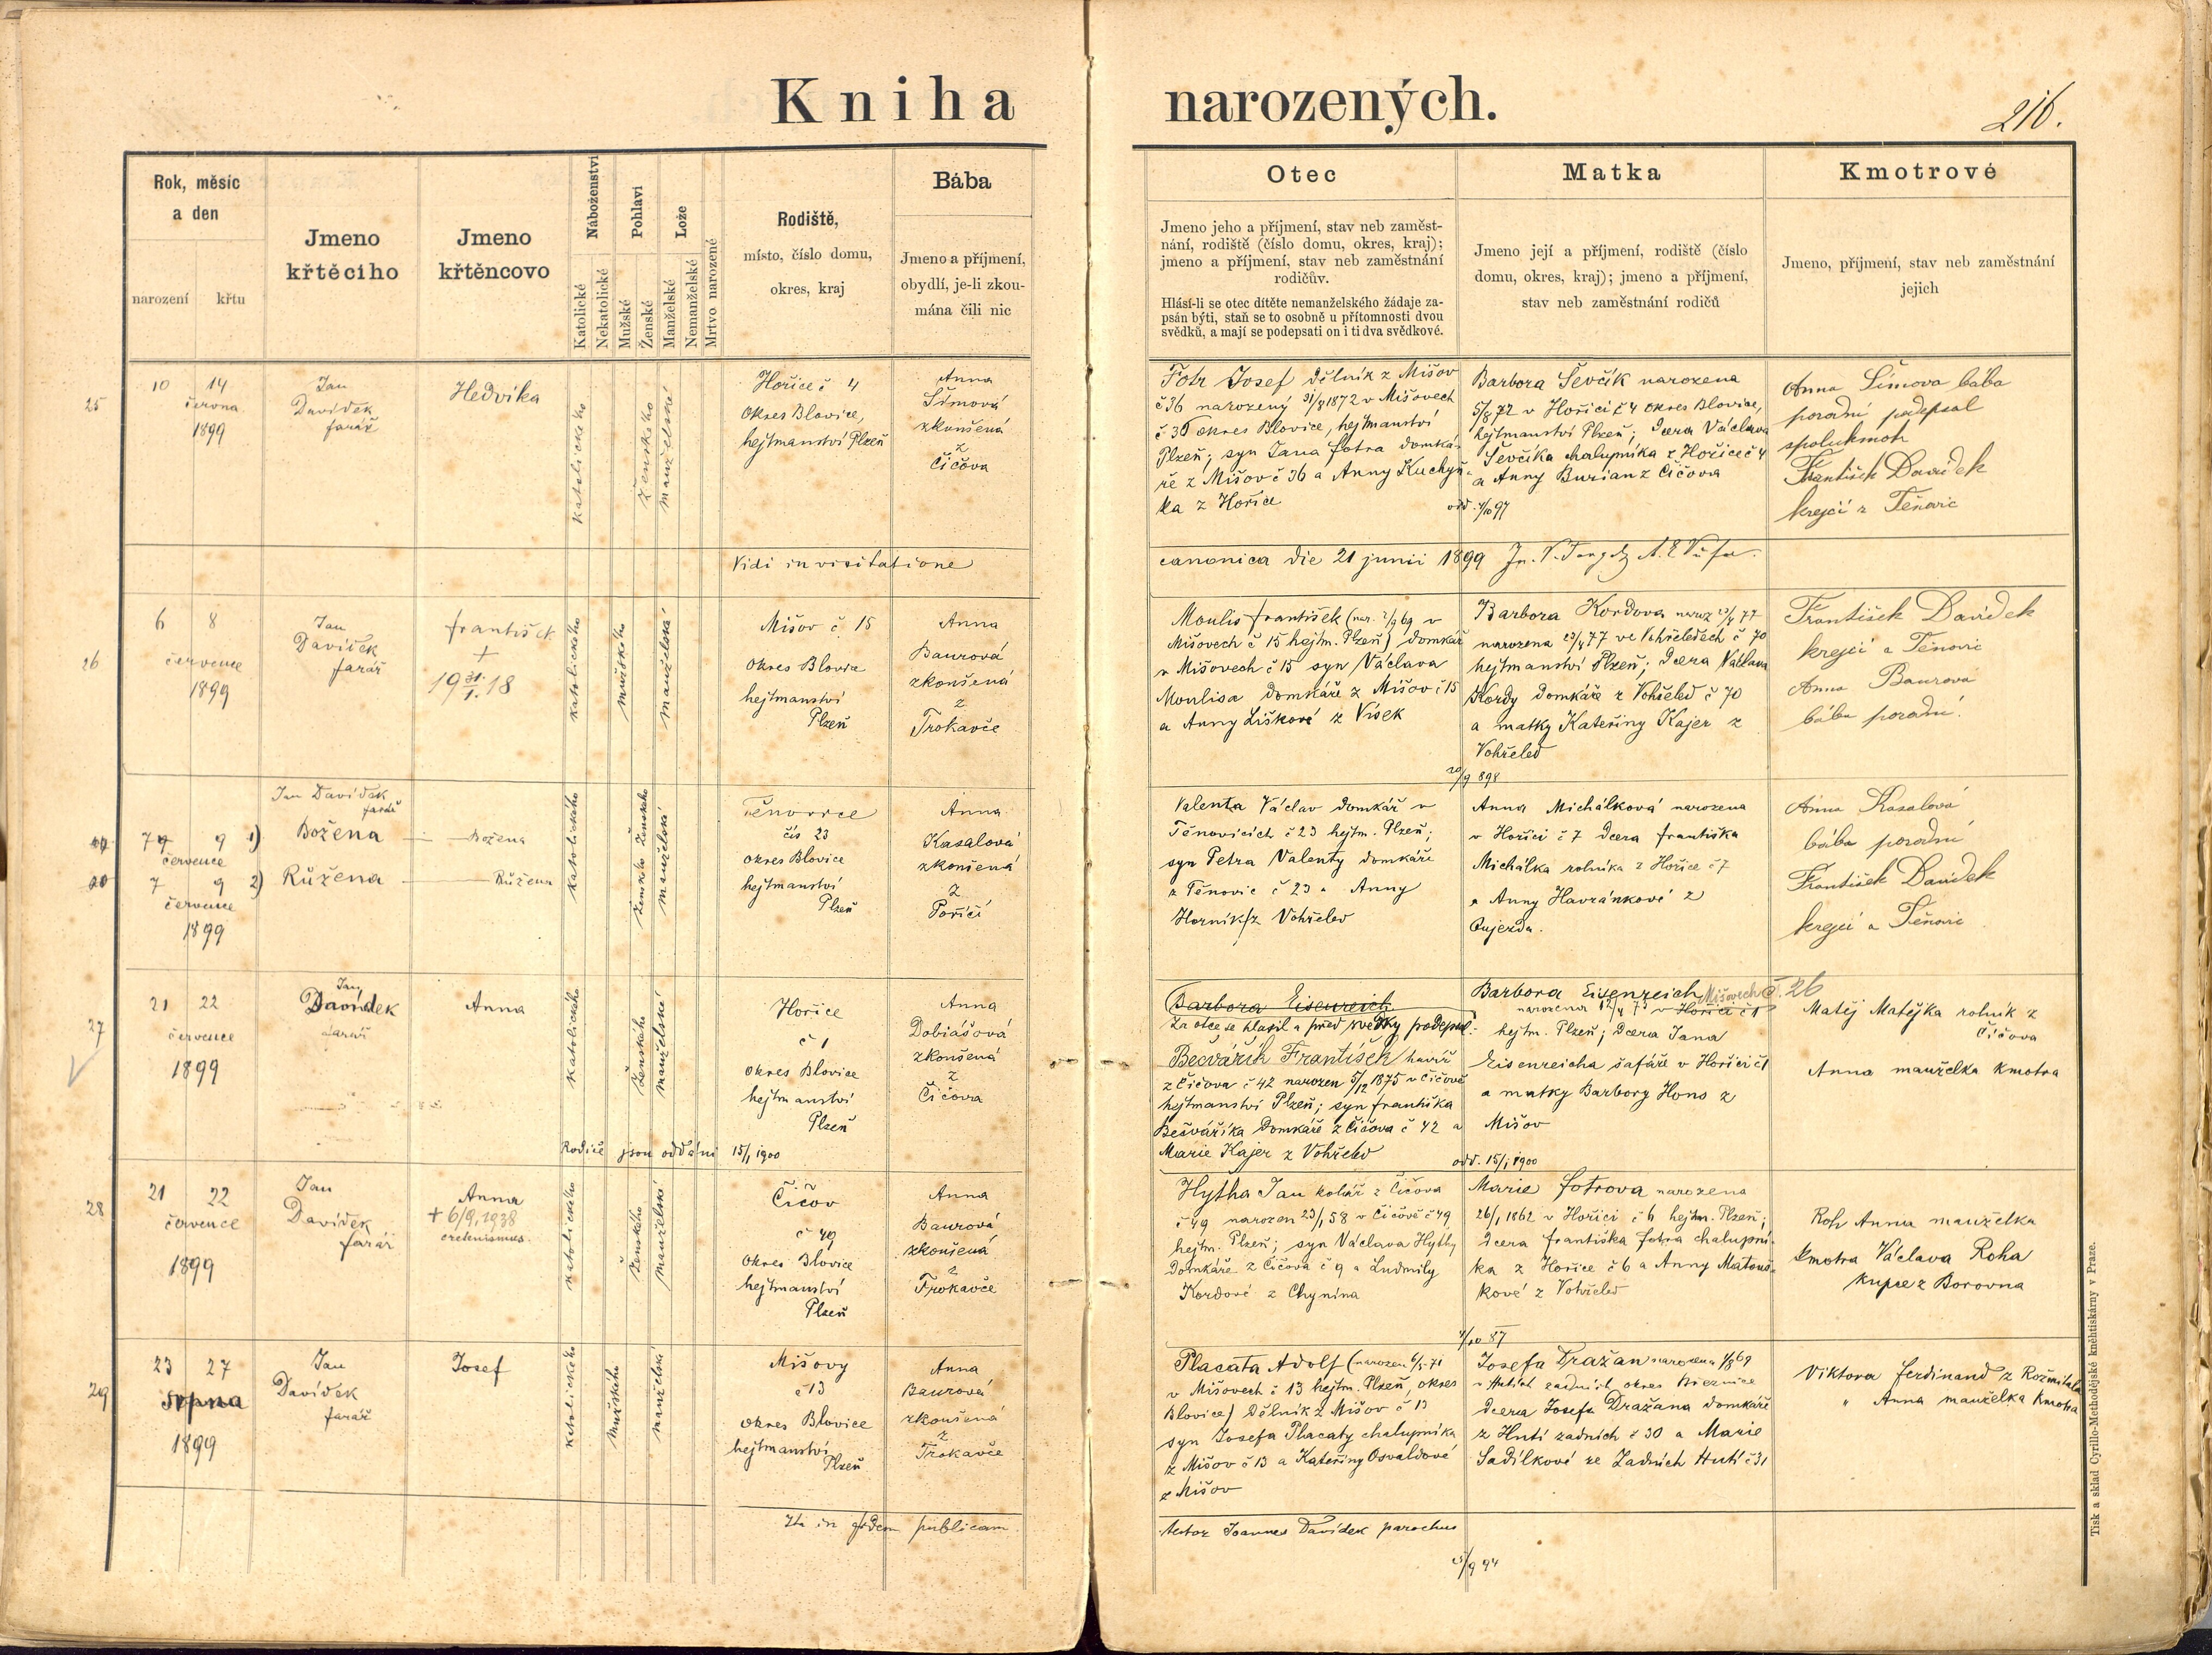 Kniha narozených.
216.
Rok, měsíc
a den
narození
křtu
Jmeno
křtěcího
Jmeno
křtěncovo
Náboženství
Katolické
Nekatolické
Pohlaví
Mužské
Ženské
Lože
Manželské
Nemanželské
Mrtvo narozené
Rodiště,
místo, číslo domu,
okres, kraj
Bába
Jmeno a příjmení,
obydlí, je-li zkou-
mána čili nic
Otec
Jmeno jeho a příjmení, stav neb zaměst-
nání, rodiště (číslo domu, okres, kraj);
jmeno a příjmení, stav neb zaměstnání
rodičův.
Hlásí-li se otec dítěte nemanželského žádaje za-
psán býti, staň se to osobně u přítomnosti dvou
svědků, a mají se podepsati on i ti dva svědkové.
Matka
Jmeno její a příjmení, rodiště (číslo
domu, okres, kraj); jmeno a příjmení,
stav neb zaměstnání rodičů
Kmotrové
Jmeno, příjmení, stav neb zaměstnání
jejich
25
10 14
června
1899
Jan
Davídek
farář
Hedvika
katolického
ženského
manželské
Hořice č 4
Okres Blovice,
hejtmanství Plzeň
Anna
Šímová
zkoušená
z
Číčova
Fotr Josef dělník z Mišov
č 36 narozený 31/8 1872 v Mišovech
č 36 okres Blovice, hejtmanství
Plzeň; syn Jana Fotra domká-
ře z Mišov č 36 a Anny Kuchyň-
ka z Hořice
Barbora Ševčík narozena
5/8 72 v Hořici č 4 okres Blovice,
hejtmanství Plzeň; dcera Václava
Ševčíka chalupníka z Hořice č 4
a Anny Burian z Číčova
odd. 4/10 97
Anna Šímova bába
porodní podepsal
spolukmotr
František Davídek
krejčí z Těnovic
Vidi in visitatione
canonica die 21 junii 1899
26
6 8
července
1899
Jan
Davídek
farář
František
+
19 31/1. 18
katolického
mužského
manželské
Mišov č 15
okres Blovice
hejtmanství
Plzeň
Anna
Baurová
zkoušená
z
Trokavče
Moulis František (nar. 2/9 69 v
Mišovech č 15 hejtm. Plzeň) domkář
v Mišovech č 15 syn Václava
Moulisa domkáře z Mišov č 15
a Anny Lišková z Vísek
Barbora Kordova naroz 23/4 77
narozena 23/4 77 ve Vohřeledech č 70
hejtmanství Plzeň; dcera Václava
Kordy domkáře z Vohřeled č 70
a matky Kateřiny Kajer z
Vohřeled
20/9 898
František Davídek
krejčí z Těnovic
Anna Baurová
bába porodní.
7 9 1)
července
7 9 2)
července
1899
Jan Davídek
farář
Božena
Růžena
Božena
Růžena
katolického
ženského ženského
manželské
Těnovice
čís 23
okres Blovice
hejtmanství
Plzeň
Anna
Kasalová
zkoušená
z
Poříčí
Valenta Václav domkář v
Těnovicích č 23 hejtm. Plzeň;
syn Petra Valenty domkáře
z Těnovic č 23 a Anny
Horník z Vohřeled
Anna Michálková narozena
v Hořici č 7 dcera Františka
Michálka rolníka z Hořice č 7
a Anny Havránkové z
Oujezda.
Anna Kasalová
bába porodní
František Davídek
krejčí z Těnovic
27
21 22
července
1899
Jan
Davídek
farář
Anna
katolického
ženského
manželské
Hořice
č 1
okres Blovice
hejtmanství
Plzeň
Anna
Dobiášová
zkoušená
z
Číčova
Rodiče jsou oddáni 15/1 1900
Barbora Eisenreich
za otce se hlásil a před svědky podepsal:
Bečvářík František havíř
z Číčova č 42 narozen 5/12 1875 v Číčově
hejtmanství Plzeň; syn Františka
Bečváříka domkáře z Číčova č 42 a
Marie Kajer z Vohřeled
Barbora Eisenreich Mišovech č. 26
narozena v Hořici č 1
hejtm. Plzeň; dcera Jana
Eisenreicha šafáře v Hořici č 1
a matky Barbory Hons z
Mišov
odd. 15/1 1900
Matěj Matějka rolník z
Číčova
Anna manželka kmotra
28
21 22
července
1899
Jan
Davídek
farář
Anna
+ 6/9. 1938
cretenismus.
katolického
ženského
manželské
Číčov
č 49
okres Blovice
hejtmanství
Plzeň
Anna
Baurová
zkoušená
z
Trokavče
Hytha Jan kolář z Číčova
č 49 narozen 23/1 58 v Číčově č 49
hejtm. Plzeň; syn Václava Hythy
domkáře z Číčova č 9 a Ludmily
Kordové z Chynína
Marie Fotrova narozena
26/1 1862 v Hořici č 6 hejtm. Plzeň;
dcera Františka Fotra chalupní-
ka z Hořice č 6 a Anny Matouš-
kové z Vohřeled
4/10 87
Roh Anna manželka
kmotra Václava Roha
kupce z Borovna
29
23 27
srpna
1899
Jan
Davídek
farář
Josef
katolického
mužského
manželské
Mišovy
č 13
okres Blovice
hejtmanství
Plzeň
Anna
Baurová
zkoušená
z
Trokavče
Placata Adolf (narozen 6/5 71
v Mišovech č 13 hejtm. Plzeň, okres
Blovice) dělník z Mišov č 13
syn Josefa Placaty chalupníka
z Mišov č 13 a Kateřiny Osvaldové
z Mišov
Josefa Dražan narozena 1/8 69
v Hutích zadních okres Březnice
dcera Josefa Dražana domkáře
z Hutí zadních č 30 a Marie
Sadílkové ze Zadních Hutí č 31
Viktora Ferdinand z Rožmitála
" Anna manželka kmotra
Ita in fidem publicam
testor Joannes Davídek parochus
25/9 94
Tisk a sklad Cyrillo-Methodějské knihtiskárny v Praze.